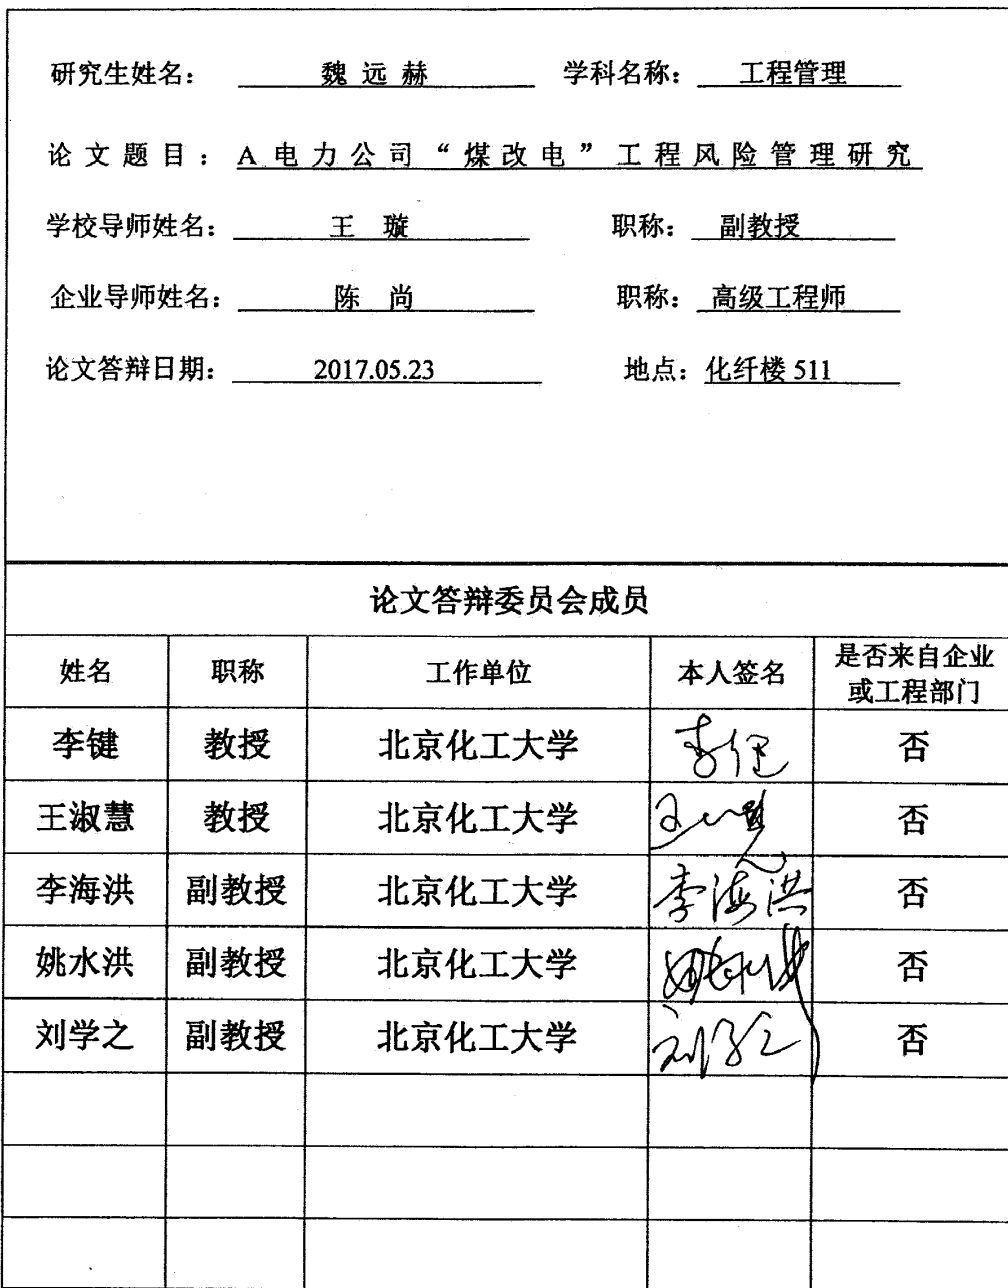 研究生姓名： 魏 远 赫 学科名称： 工程管理
论 文 题 目 ： A 电 力 公 司 “ 煤 改 电 ” 工 程 风 险 管 理 研 究
学校导师姓名： 王 璇 职称： 副教授
企业导师姓名： 陈 尚 职称： 高级工程师
论文答辩日期： 2017.05.23 地点： 化纤楼 511
论文答辩委员会成员
姓名 职称 工作单位 本人签名 是否来自企业
或工程部门
李键 教授 北京化工大学 李键 否
王淑慧 教授 北京化工大学 否
李海洪 副教授 北京化工大学 李海洪 否
姚水洪 副教授 北京化工大学 否
刘学之 副教授 北京化工大学 刘学之 否